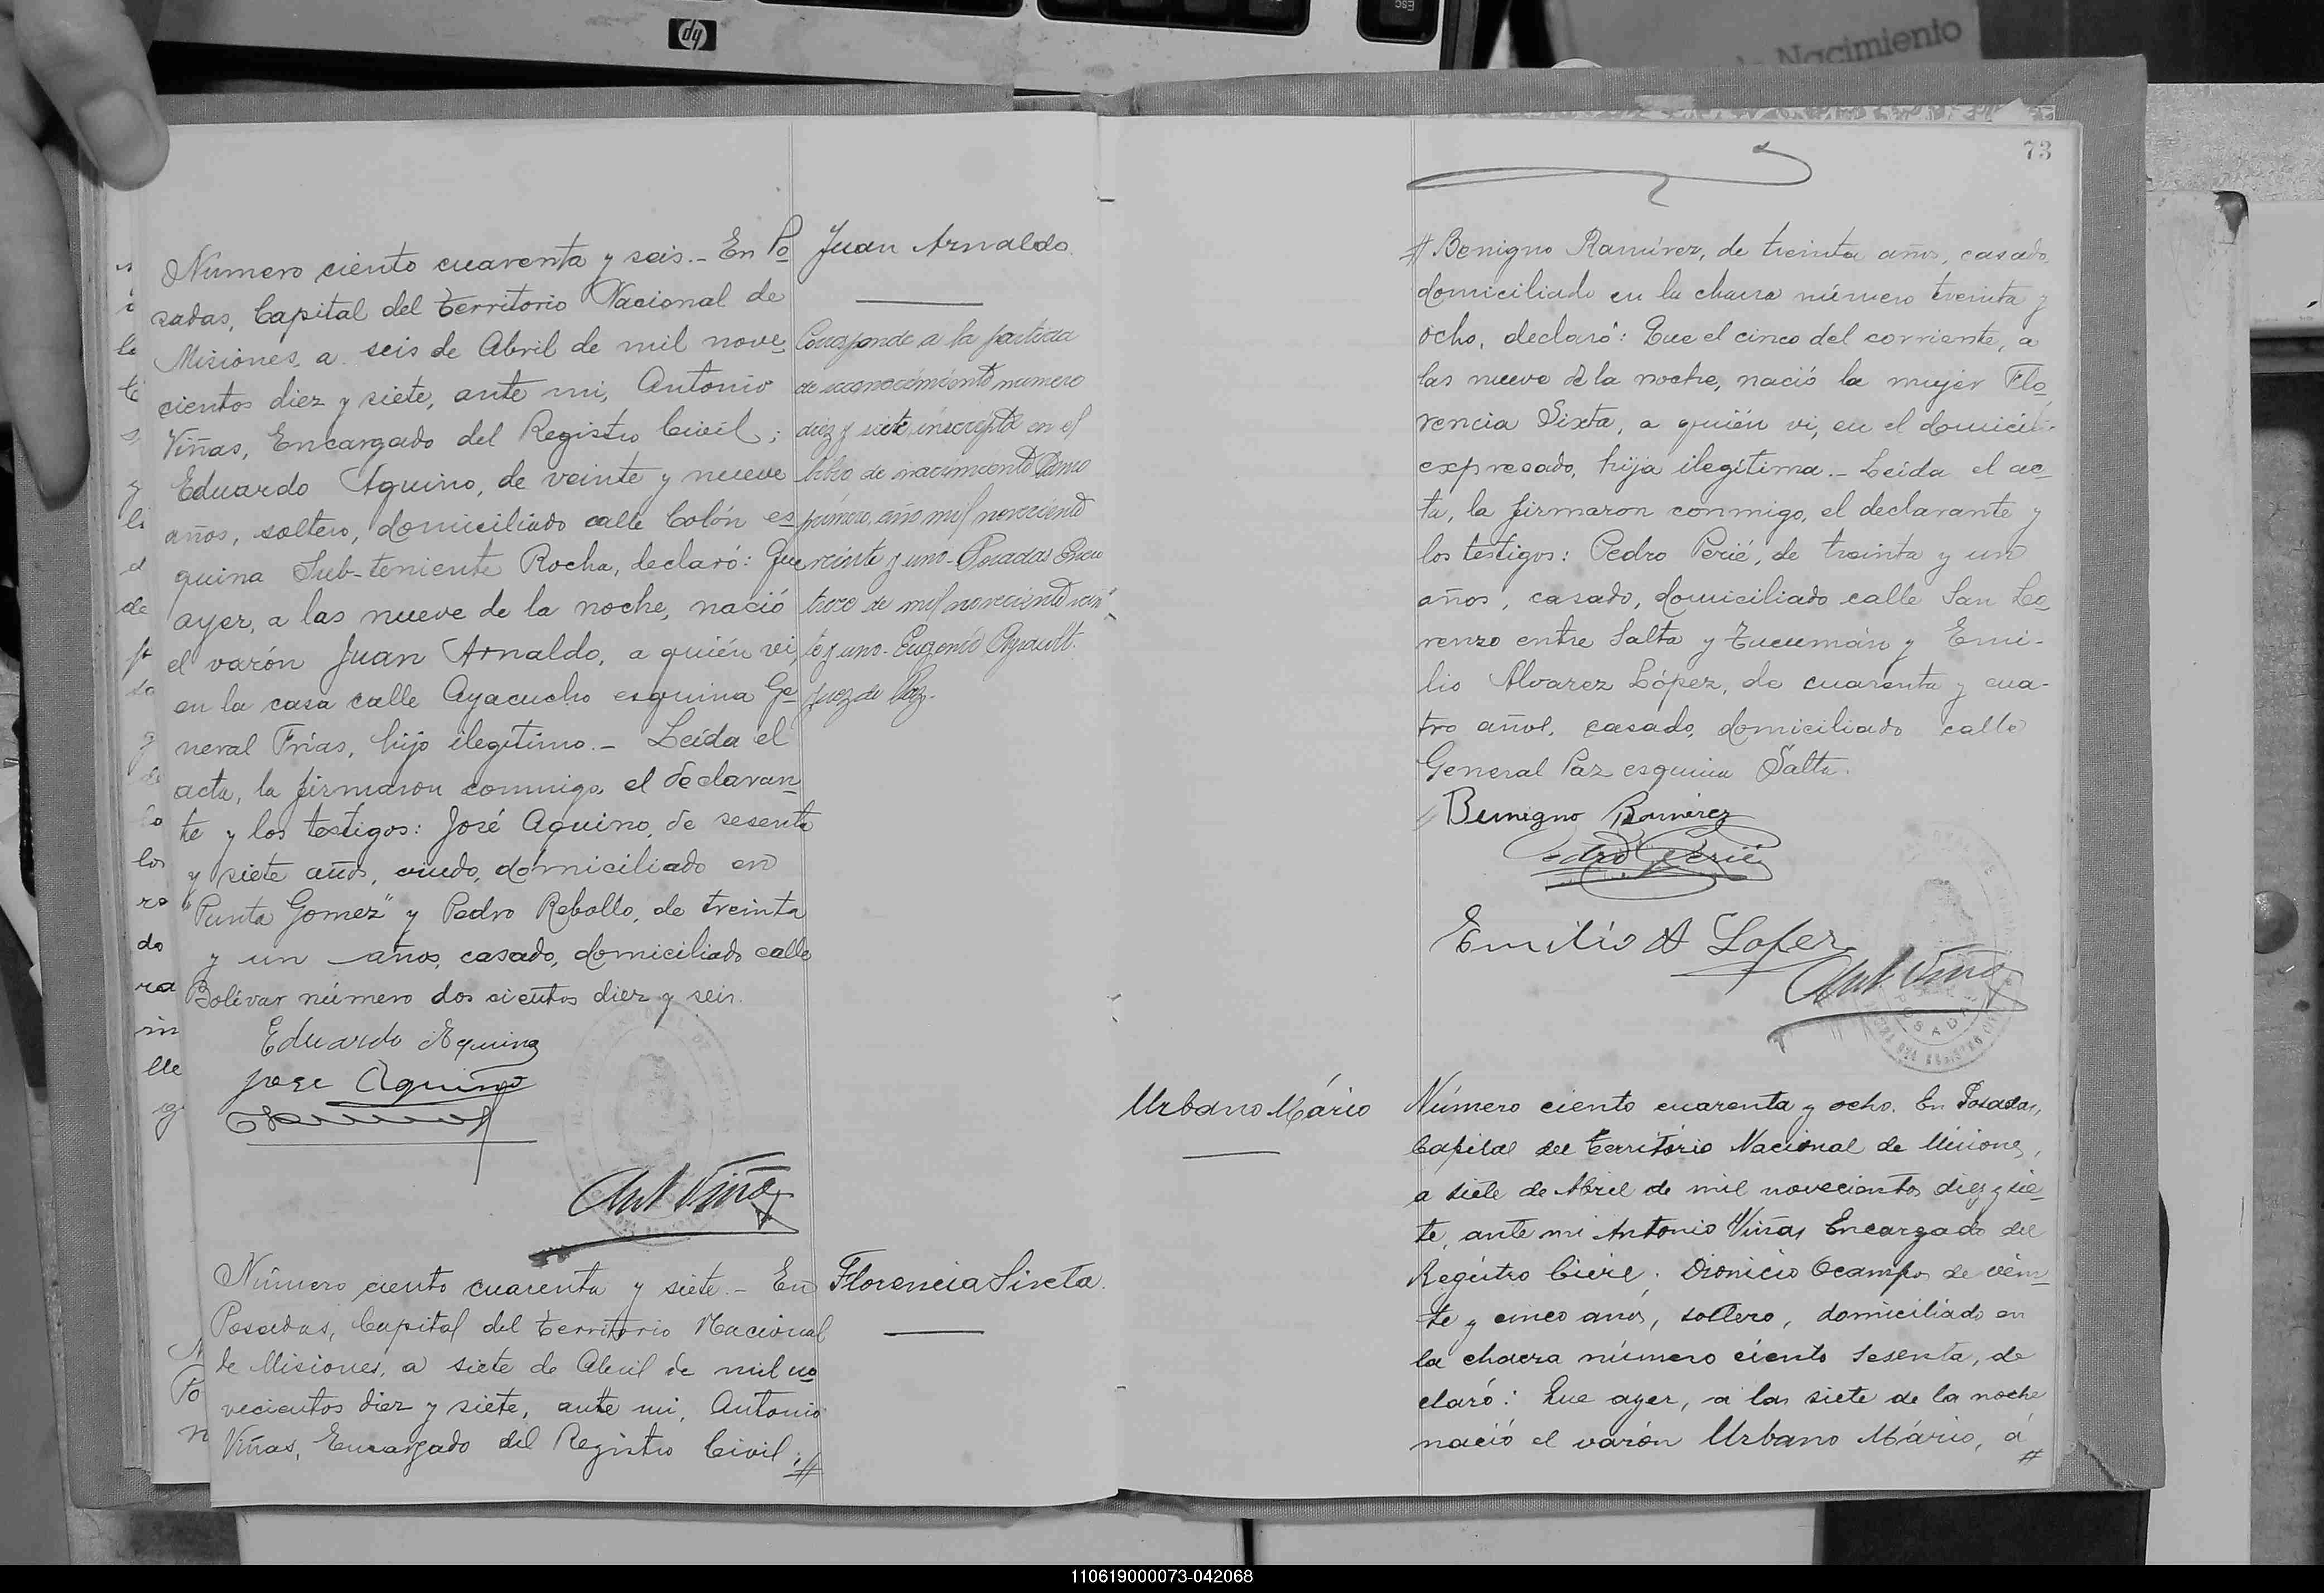 hp
ESC
Nacimiento
Número ciento cuarenta y seis.- En Po
sadas, Capital del Territorio Nacional de
Misiones, a seis de Abril de mil nove
cientos diez y siete, ante mi, Antonio
Viñas, Encargado del Registro Civil;
Eduardo Aquino, de veinte y nueve
años, soltero, domiciliado calle Colón es
quina Sub-teniente Rocha, declaró: Que
ayer, a las nueve de la noche, nació
el varón Juan Arnaldo, a quién vi,
en la casa calle Ayacucho esquina Ge
neral Frías, hijo ilegítimo.- Leída el
acta, la firmaron conmigo, el declaran
te y los testigos: José Aquino, de sesenta
y siete años, viudo, domiciliado en
"Punta Gomez" y Pedro Rebollo, de treinta
y un años, casado, domiciliado calle
Bolívar número dos cientos diez y seis.
Eduardo Aquino
Jose Aquino
Ant Viñas
Juan Arnaldo.
Corresponde a la partida
de reconocimiento numero
diez y siete inscripta en el
libro de nacimiento tomo
primero, año mil novecientos
veinte y uno - Posadas Enero
trece de mil novecientos vein
te y uno - Eugenio
Juez de Paz.
Número ciento cuarenta y siete.- En
Posadas, Capital del Territorio Nacional
de Misiones, a siete de Abril de mil no
vecientos diez y siete, ante mi, Antonio
Viñas, Encargado del Registro Civil;#
Florencia Sixta.
73
# Benigno Ramírez, de treinta años, casado,
domiciliado en la chacra número treinta y
ocho, declaró: Que el cinco del corriente, a
las nueve de la noche, nació la mujer Flo
rencia Sixta, a quién vi, en el domicilio
expresado, hija ilegítima.- Leída el ac
ta, la firmaron conmigo, el declarante y
los testigos: Pedro Perié, de treinta y un
años, casado, domiciliado calle San Lo
renzo entre Salta y Tucumán y Emi-
lio Alvarez López, de cuarenta y cua-
tro años, casado, domiciliado calle
General Paz esquina Salta.
Benigno Ramirez
Pedro Perié
Emilio A Lopez
Ant. Viñas
Urbano Mário
Número ciento cuarenta y ocho. En Posadas,
Capital del Território Nacional de Misiones,
a siete de Abril de mil novecientos diez y sie
te, ante mi Antonio Viñas Encargado del
Registro Civil; Dionicio Ocampo, de vein
te y cinco años, soltero, domiciliado en
la chacra número ciento sesenta, de
claró: Que ayer, a las siete de la noche
nació el varón Urbano Mário, á
#
110619000073-042068